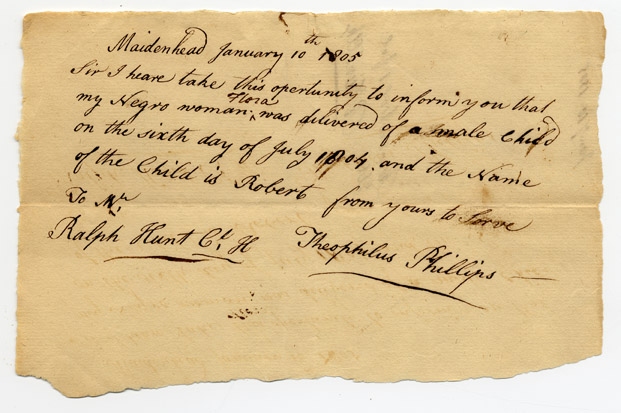 Maidenhead January 10th 1805
Sir I heare take this opertunity to inform you that
my Negro woman Flora was delivered of a male Child
on the sixth day of July 1804 and the Name
of the Child is Robert from yours to Serve
To Mr.
Ralph Hunt Ct. H Theophilus Phillips